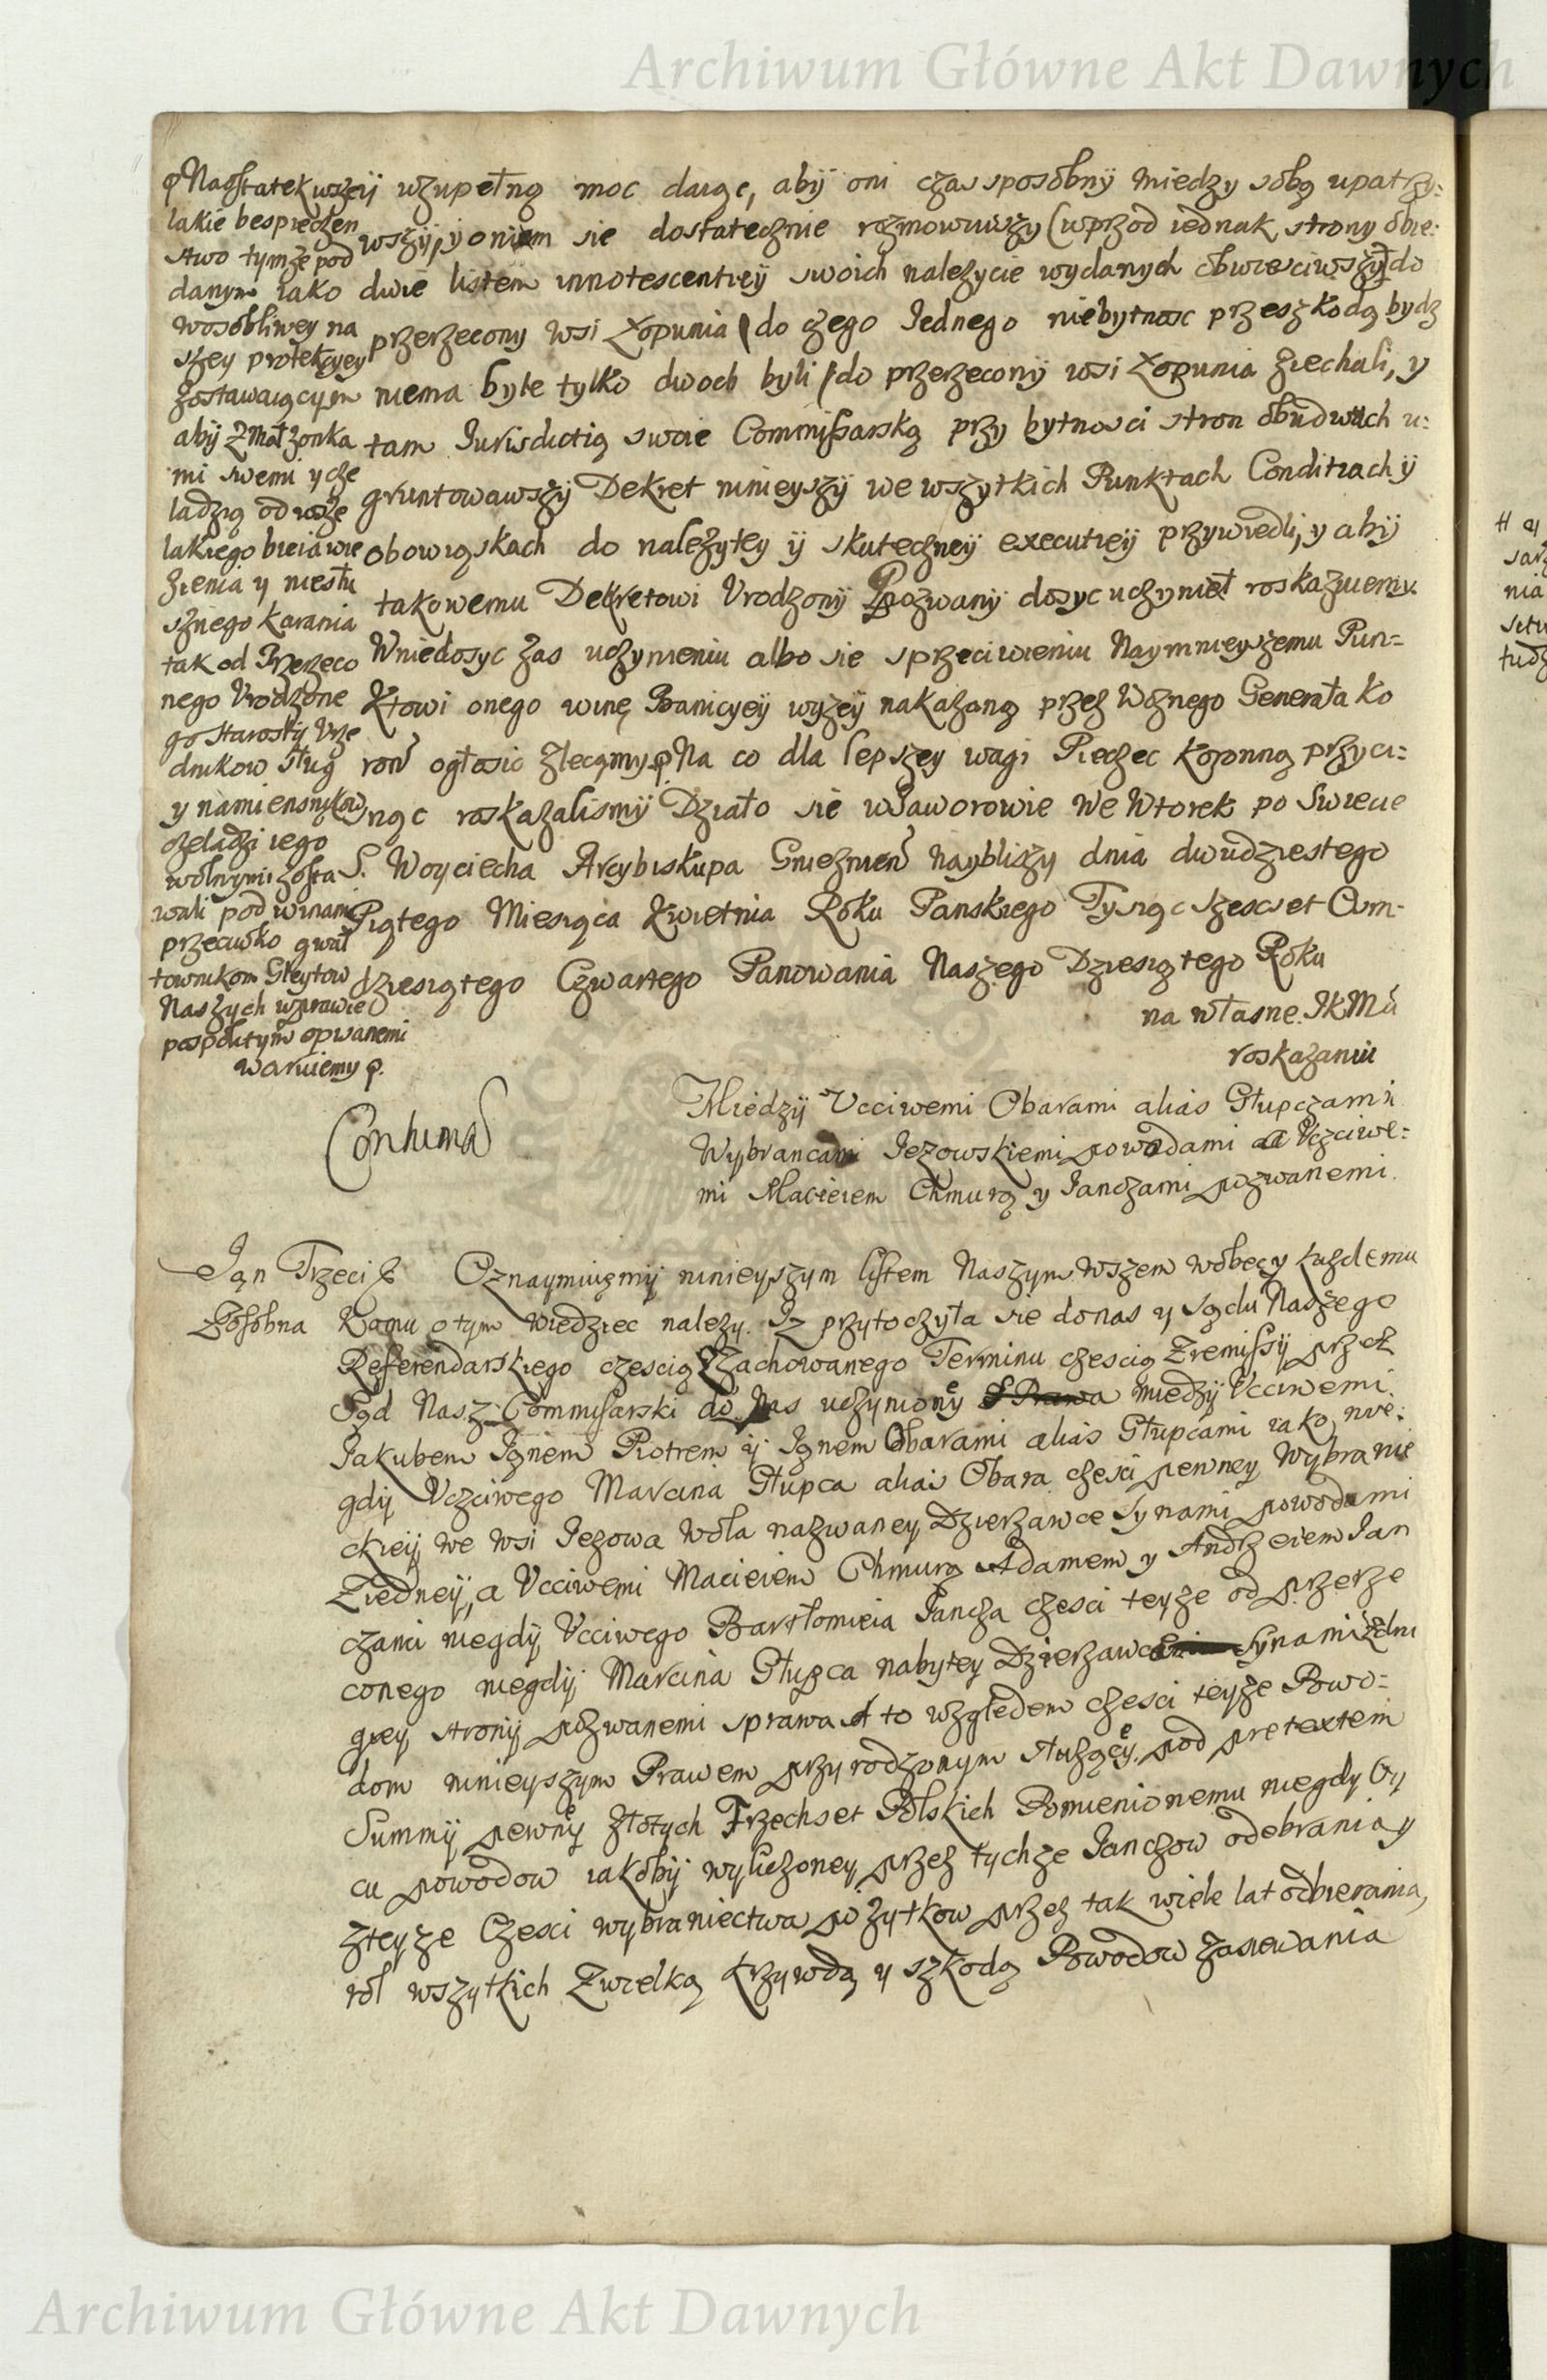 Archiwum Główne Akt Dawnych
uzupełną moc daiąc, abÿ oni czas sposobnÿ miedzy sobą upatrzy:
wszÿ, y oniem sie dostatecznie rozmowiwszy (wprzod iednak strony obie:
dwie listem innotescentieÿ swoich nalezycie wydanych obwiesciwszÿ) do
przerzecony wsi Łopunia do czego Iednego niebytnosc przeszkodą bydz
niema byle tylko dwoch byli do przerzeconÿ wsi Łopunia ziechali, y
tam Iurisdictią swoie Commissarską przy bytnosci stron obudwuch u:
gruntowawszÿ Dekret ninieyszÿ we wszytkich Punktach Conditiach ÿ
obowiąskach do nalezytey ÿ skuteczneÿ executieÿ przywiedli, y abÿ
takowemu Dekretowi Urodzonÿ Pozwanÿ dosyc uczynieł roskazuiemy.
Wniedosyc zas uczynieniu albo sie sprzeciwieniu Naymnieyszemu Pun=
Ktowi onego winę Banicyeÿ wyzeÿ nakazaną przez Woznego Generała ko
ron ogłosic zlecamy. φ Na co dla lepszey wagi Pieczec Koronną przyci:
nąc roskazalismÿ Działo sie w Jaworowie We Wtorek po Swiecie
S. Woyciecha Arcybiskupa Gnieznien nayblizszy dnia dwudziestego
Piątego Miesiąca Kwietnia Roku Panskiego Tysiąc szescset Osm-
dziesiątego Czwartego Panowania Naszego Dziesiątego Roku
na własne IKMci
roskazanie
φ Naostatek wszeÿ
lakie bespieczen
stwo tymze pod
danym iako
wosobliwey na
szey protekcyey
zostawaiącym
abÿ z Małzonka
mi swemi y cze
ladzią od wsze
lakiego bicia wie
zienia y niesłu
sznego karania
tak od Przerzeco
nego Urodzone
go Starostÿ Urze
dnikow sług
y namiesnikow
czeladzi iego
wolnymi zosta
wali pod winami
przeciwko gwał
townikom Gleytow
Naszych wprawie
pospolitym opisanemi
waruiemy φ.
Miedzÿ Ucciwemi Obarami alias Głupczami
Wybrancami Iezowskiemi powodami a Uczciwe=
mi Macieiem Chmurą y Ianczami pozwanemi.
Ian Trzeci &c Oznaymuiemÿ ninieyszym listem Naszym wszem wobecy kazdemu
Zosobna komu o tym wiedziec nalezy. Iz przytoczyła sie do nas y Sądu Naszego
Referendarskiego czescią Zachowanego Terminu czescią z remissÿ przez
Sąd Nasz Commissarski do Nas uczynioneÿ miedzÿ Ucciwemi
Iakubem Ianem Piotrem ÿ Ianem Obarami alias Głupcami iako nie:
gdÿ Uczciwego Marcina Głupca alias Obara czesci pewney Wybranie
ckieÿ we wsi Iezowa Wola nazwaney Dzierzawce synami powodami
Ziedneÿ, a Ucciwemi Macieiem Chmurą Adamem y Andrzeiem Ian
czami niegdÿ Ucciwego Bartłomieia Iancza czesci teyze od przerze
conego niegdÿ Marcina Głupca nabytey Dzierzawce synami zdru
giey stronÿ pozwanemi sprawa A to względem czesci teyze Powo=
dom ninieyszym Prawem przyrodzonym słuząceÿ, pod pretextem
Summÿ pewneÿ złotych Trzechset Polskich Pomienionemu niegdy Oy
cu powodow iakobÿ wyliczoney przez tychze Ianczow odebrania y
zteyze Czesci wybraniectwa pozytkow przez tak wiele lat odbierania,
rol wszytkich Zwielką krzywdą y szkodą Powodow zasiewania
Archiwum Główne Akt Dawnych